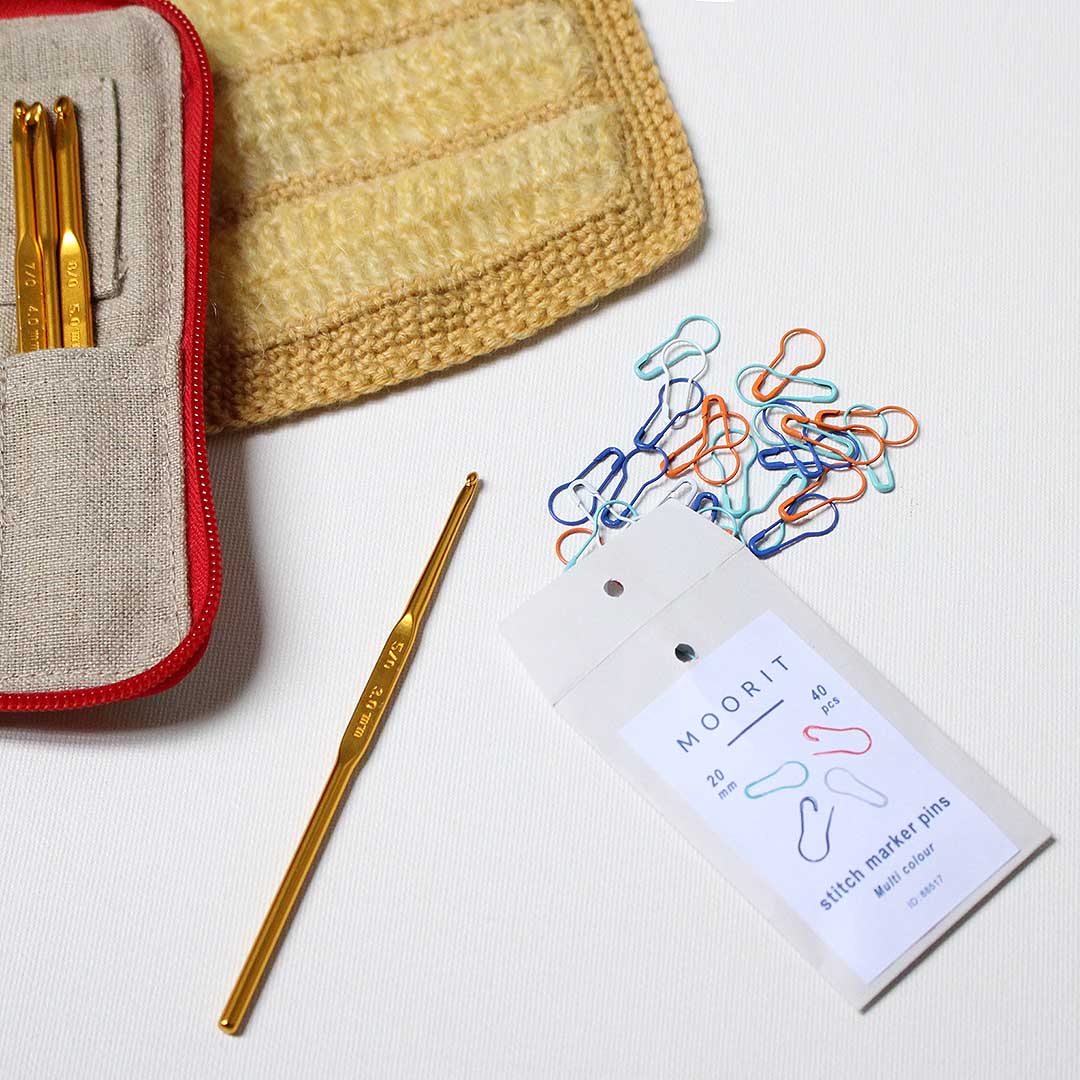 7/0 4.0 mm
8/0 5.0 mm
5/0 3.0 mm
MOORIT
40
pcs
20
mm
stitch marker pins
Multi colour
ID: 88517